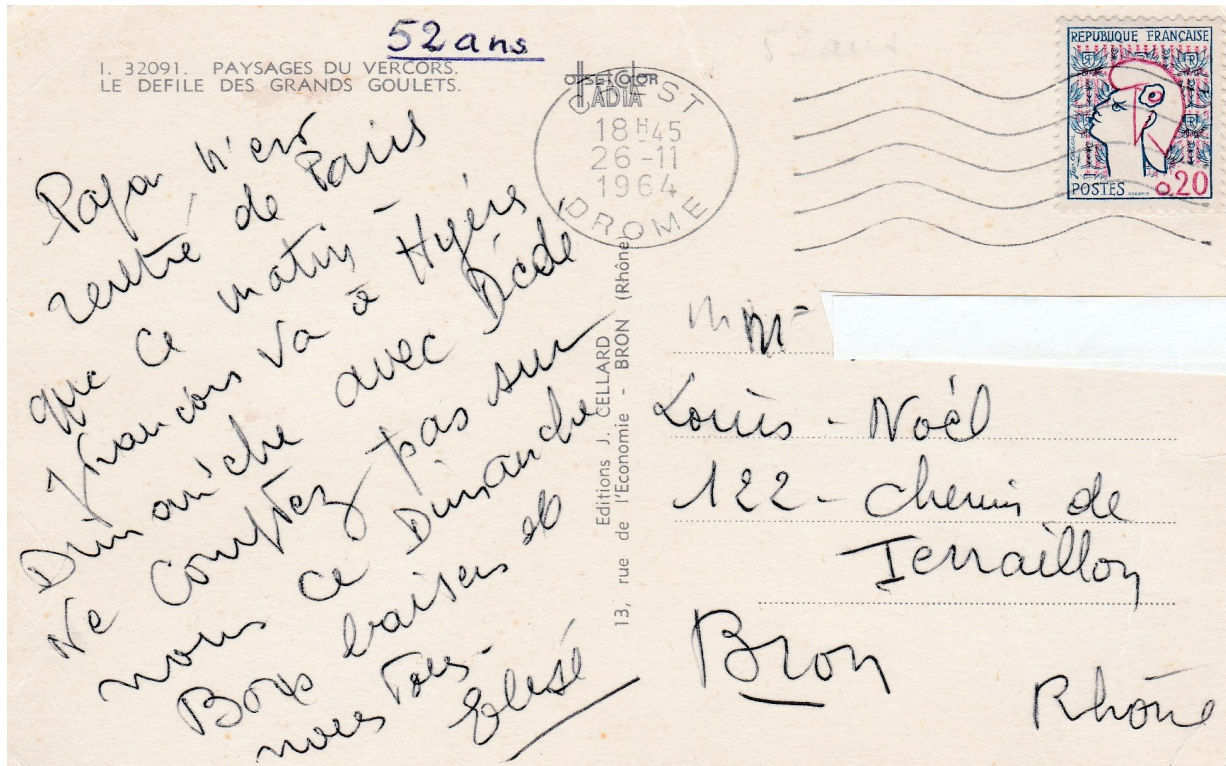 52 ans
I. 32091. PAYSAGES DU VERCORS.
LE DEFILE DES GRANDS GOULETS.
OFFSETCOLOR
ADIA
CREST
18H45
26-11
1964
DROME
REPUBLIQUE FRANÇAISE
POSTES 0.20
Papa n'est
rentré de Paris
que ce matin
François va à Hyères
Dimanche avec Dédé
Ne comptez pas sur
nous ce Dimanche
Bons baisers de
nous Tous-
Editions J. CELLARD
13, rue de l'Economie - BRON (Rhône)
Louis-Noël
122-chemin de
Terraillon
Bron
Rhône